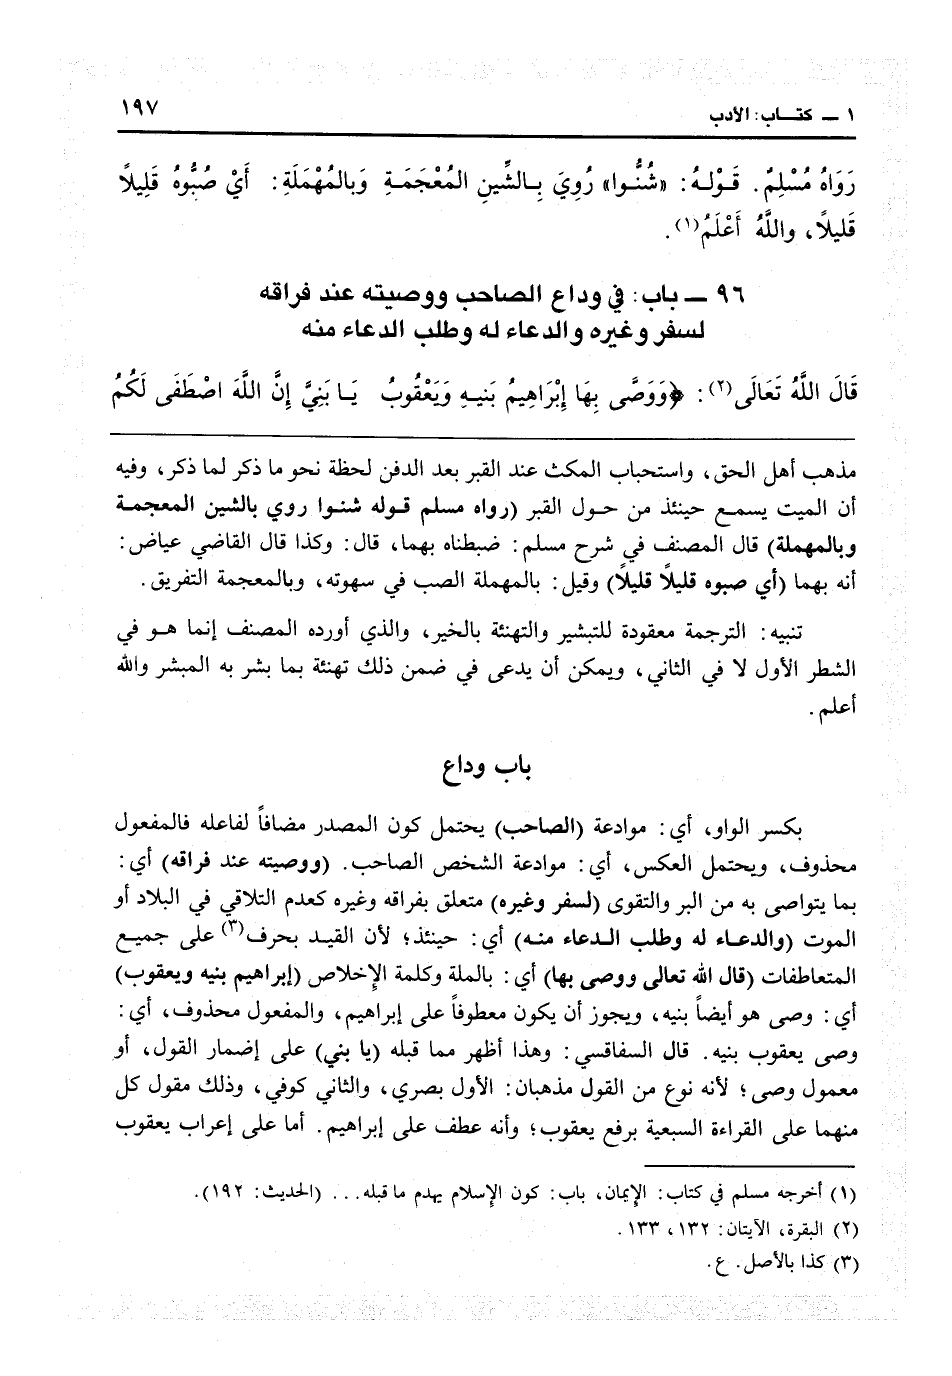 ١ ــ كتــاب: الأدب
١٩٧
رَوَاهُ مُسْلِمٌ. قَـوْلـهُ: «شُنُّـوا» رُوِيَ بِـالشِّينِ المُعْجَمَـةِ وَبالمُهْمَلَةِ: أَيْ صُبُّوهُ قَلِيلاً
قَلِيلاً، واللَّهُ أَعْلَمُ(١).
٩٦ ــ باب: في وداع الصاحب ووصيته عند فراقه
لسفر وغيره والدعاء له وطلب الدعاء منه
قَالَ اللَّهُ تَعَالَى(٢): ﴿وَوَصَّى بِهَا إِبْرَاهِيمُ بَنيـهِ وَيَعْقُوبُ يَـا بَنِيَّ إِنَّ اللَّهَ اصْطَفَى لَكُمُ
مذهب أهل الحق، واستحباب المكث عند القبر بعد الدفن لحظة نحو ما ذكر لما ذكر، وفيه
أن الميت يسمـع حينئذ من حـول القبر (رواه مسلم قـوله شنـوا روي بالشين المعجمـة
وبالمهملة) قال المصنف في شرح مسلم: ضبطناه بهما، قال: وكذا قال القاضي عياض:
أنه بهما (أي صبوه قليلاً قليلاً) وقيل: بالمهملة الصب في سهوته، وبالمعجمة التفريق.
تنبيه: الترجمة معقودة للتبشير والتهنئة بالخير، والذي أورده المصنف إنما هـو في
الشطر الأول لا في الثاني، ويمكن أن يدعى في ضمن ذلك تهنئة بما بشر به المبشر والله
أعلم.
باب وداع
بكسر الواو، أي: موادعة (الصاحب) يحتمل كون المصدر مضافاً لفاعله فالمفعول
محذوف، ويحتمل العكس، أي: موادعة الشخص الصاحب. (ووصيته عند فراقه) أي:
بما يتواصى به من البر والتقوى (لسفر وغيره) متعلق بفراقه وغيره كعدم التلاقي في البلاد أو
الموت (والدعـاء له وطلب الـدعاء منـه) أي: حينئذ؛ لأن القيـد بحرف(٣) على جميـع
المتعاطفات (قال الله تعالى ووصى بها) أي: بالملة وكلمة الإخلاص (إبراهيم بنيه ويعقوب)
أي: وصى هو أيضاً بنيه، ويجوز أن يكون معطوفاً على إبراهيم، والمفعول محذوف، أي:
وصى يعقوب بنيه. قال السفاقسي: وهذا أظهر مما قبله (يا بني) على إضمار القول، أو
معمول وصى؛ لأنه نوع من القول مذهبان: الأول بصري، والثاني كوفي، وذلك مقول كل
منهما على القراءة السبعية برفع يعقوب؛ وأنه عطف على إبراهيم. أما على إعراب يعقوب
(١) أخرجه مسلم في كتاب: الإيمان، باب: كون الإسلام يهدم ما قبله... (الحديث: ١٩٢).
(٢) البقرة، الآيتان: ١٣٢، ١٣٣.
(٣) كذا بالأصل. ع.